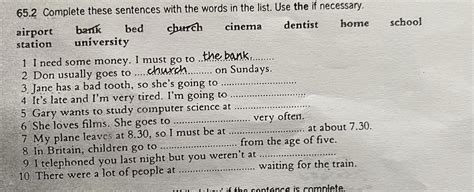 65.2 Complete these sentences with the words in the list. Use the if necessary.
airport bank bed church cinema dentist home school
station university
1 I need some money. I must go to ..the bank,..........
2 Don usually goes to .....church.......... on Sundays.
3 Jane has a bad tooth, so she's going to ........................
4 It's late and I'm very tired. I'm going to ........................
5 Gary wants to study computer science at ........................
6 She loves films. She goes to ........................ very often.
7 My plane leaves at 8.30, so I must be at ........................ at about 7.30.
8 In Britain, children go to ........................ from the age of five.
9 I telephoned you last night but you weren't at ........................
10 There were a lot of people at ........................ waiting for the train.
if the sentence is complete.